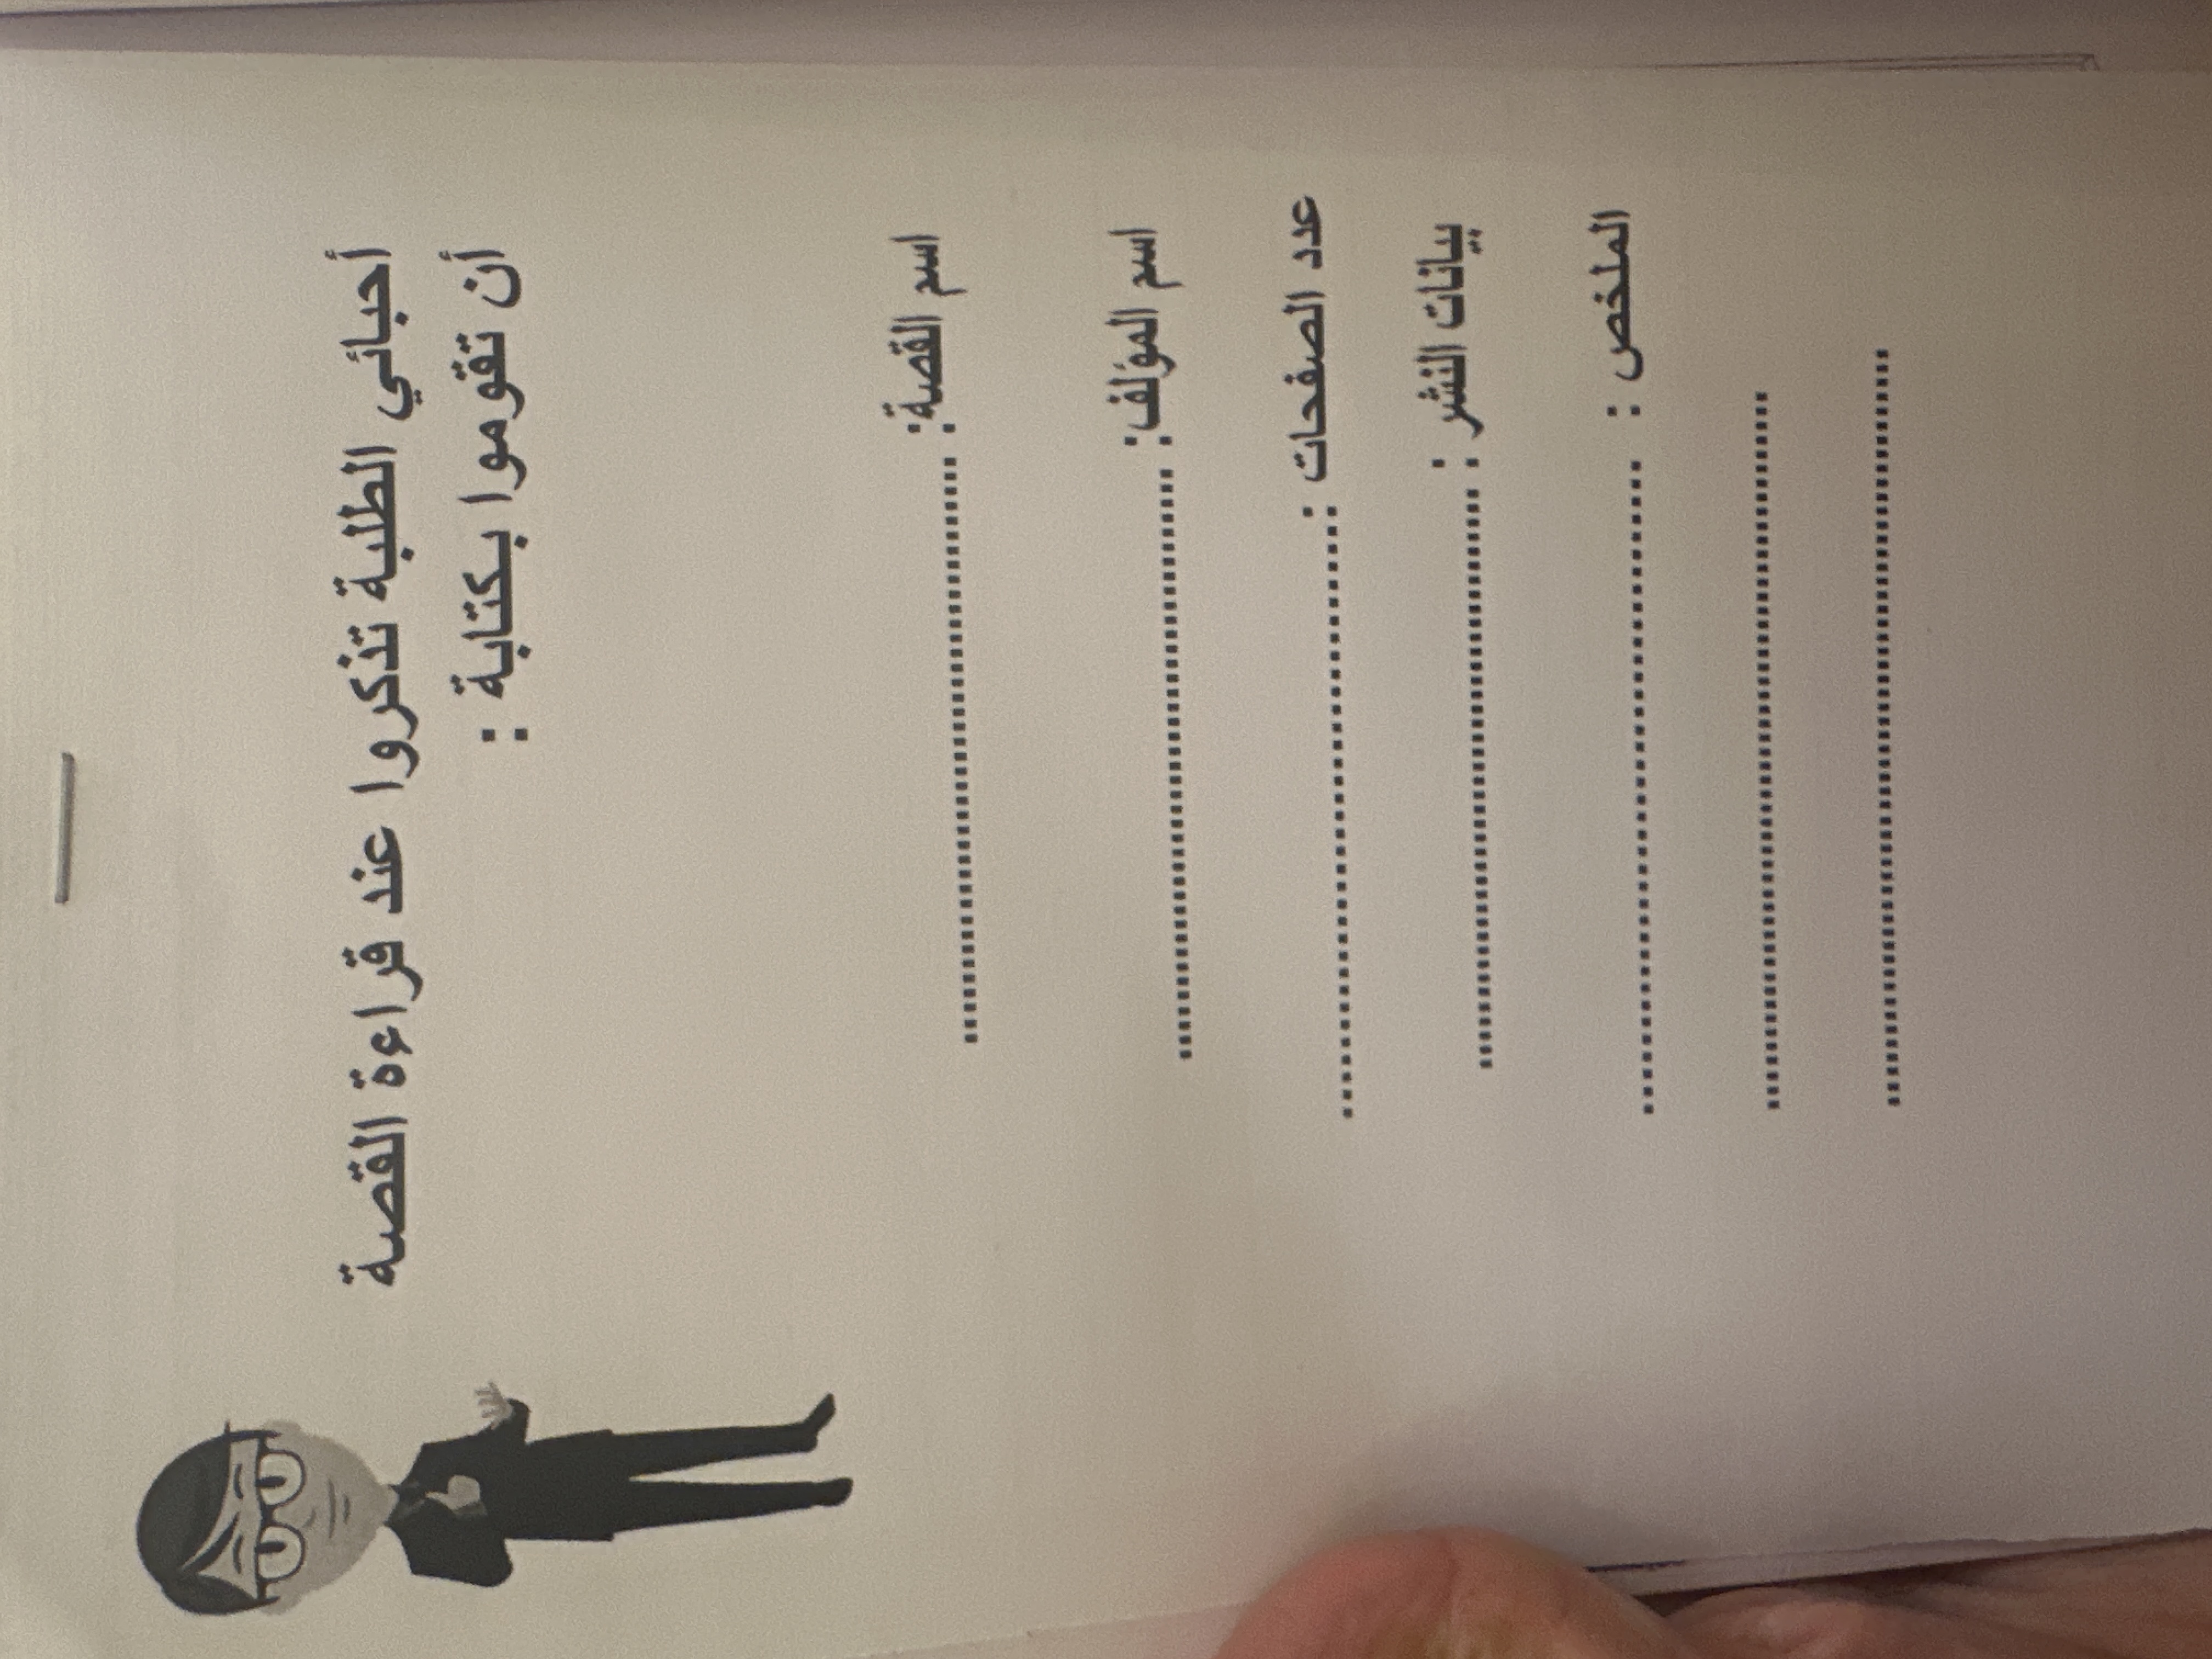 أحبائي الطلبة تذكروا عند قراءة القصة
أن تقوموا بكتابة :
اسم القصة: ..........................................................
اسم المؤلف: ..........................................................
عدد الصفحات : ..........................................................
بيانات النشر : ..........................................................
الملخص : ..........................................................
..........................................................
..........................................................